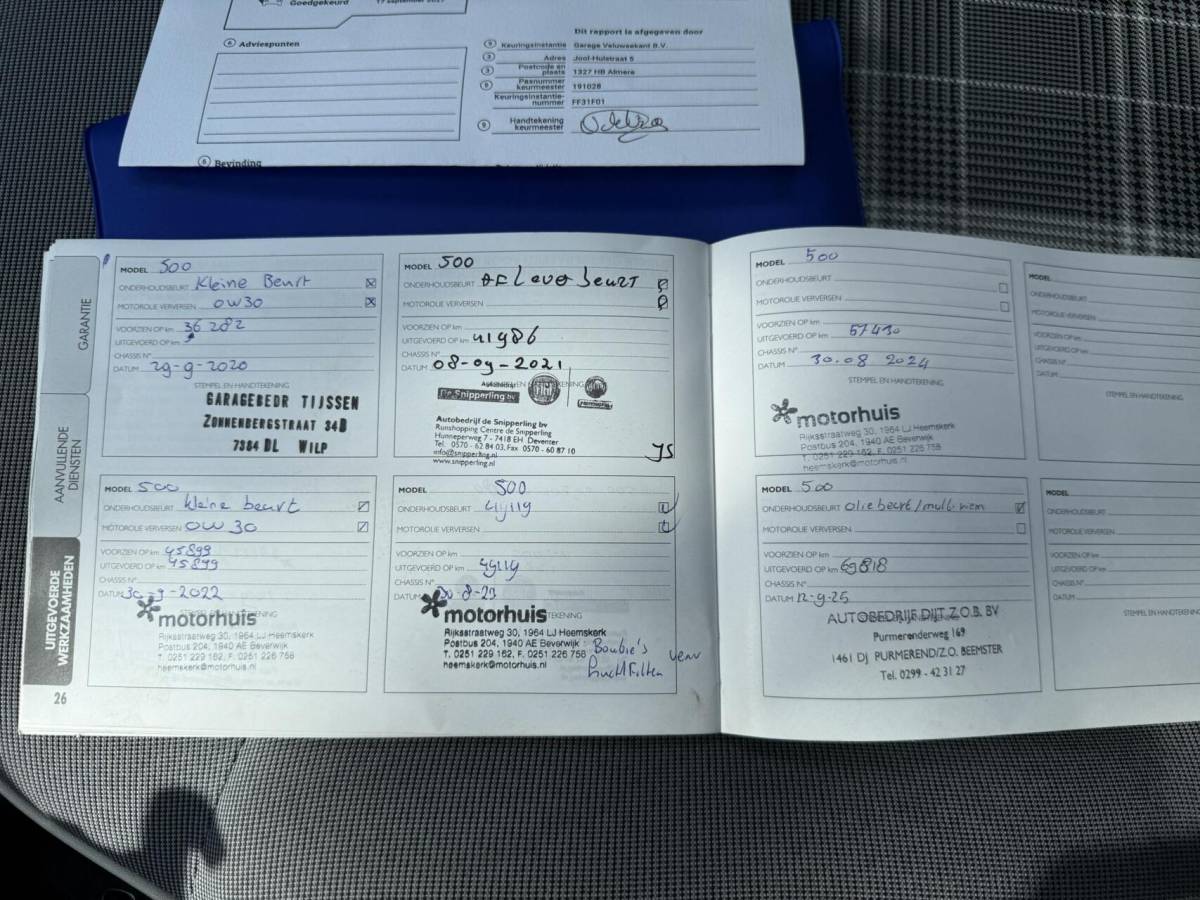 Goedgekeurd 17 september
6 Adviespunten
Dit rapport is afgegeven door
Keuringsinstantie Garage Veluwsekant B.V.
Adres Joof-Hulstraat 5
Postcode en plaats 1327 HB Almere
Pasnummer keurmeester 191028
Keuringsinstantie-nummer FF31F01
Handtekening keurmeester
Bevinding
GARANTIE
AANVULLENDE DIENSTEN
UITGEVOERDE WERKZAAMHEDEN
26
MODEL 500
ONDERHOUDSBEURT Kleine Beurt
MOTOROLIE VERVERSEN 0W30
VOORZIEN OP km 36 282
UITGEVOERD OP km
CHASSIS N°
DATUM 29-9-2020
STEMPEL EN HANDTEKENING
GARAGEBEDR TIJSSEN
ZONNENBERGSTRAAT 34B
7384 BL WILP
MODEL 500
ONDERHOUDSBEURT AFLeverbeurt
MOTOROLIE VERVERSEN
VOORZIEN OP km
UITGEVOERD OP km 41986
CHASSIS N°
DATUM 08-09-2021
De Snipperling bv
FIAT
Autobedrijf de Snipperling bv
Runshopping Centre de Snipperling
Hunneperweg 7 - 7418 EH Deventer
Tel. 0570 - 62 84 03, Fax 0570 - 60 87 10
info@snipperling.nl
www.snipperling.nl
JS
MODEL 500
ONDERHOUDSBEURT
MOTOROLIE VERVERSEN
VOORZIEN OP km
UITGEVOERD OP km 57430
CHASSIS N°
DATUM 30.08 2024
STEMPEL EN HANDTEKENING
motorhuis
Rijksstraatweg 30, 1964 LJ Heemskerk
Postbus 204, 1940 AE Beverwijk
T. 0251 229 162, F. 0251 226 758
heemskerk@motorhuis.nl
MODEL
ONDERHOUDSBEURT
MOTOROLIE VERVERSEN
VOORZIEN OP km
UITGEVOERD OP km
CHASSIS N°
DATUM
STEMPEL EN HANDTEKENING
MODEL 500
ONDERHOUDSBEURT kleine beurt
MOTOROLIE VERVERSEN 0W 30
VOORZIEN OP km 45899
UITGEVOERD OP km 45899
CHASSIS N°
DATUM 30-9-2022
STEMPEL EN HANDTEKENING
motorhuis
Rijksstraatweg 30, 1964 LJ Heemskerk
Postbus 204, 1940 AE Beverwijk
T. 0251 229 162, F. 0251 226 758
heemskerk@motorhuis.nl
MODEL 500
ONDERHOUDSBEURT
MOTOROLIE VERVERSEN
VOORZIEN OP km
UITGEVOERD OP km
CHASSIS N°
DATUM
motorhuis
Rijksstraatweg 30, 1964 LJ Heemskerk
Postbus 204, 1940 AE Beverwijk
T. 0251 229 162, F. 0251 226 758
heemskerk@motorhuis.nl
Bougie's
MODEL 500
ONDERHOUDSBEURT oliebeurt/multiriem
MOTOROLIE VERVERSEN
VOORZIEN OP km
UITGEVOERD OP km 69818
CHASSIS N°
DATUM 12-9-25
AUTOBEDRIJF DIJT Z.O.B. BV
Purmerenderweg 169
1461 DJ PURMEREND/Z.O. BEEMSTER
Tel. 0299 - 42 31 27
MODEL
ONDERHOUDSBEURT
MOTOROLIE VERVERSEN
VOORZIEN OP km
UITGEVOERD OP km
CHASSIS N°
DATUM
STEMPEL EN HANDTEKENING